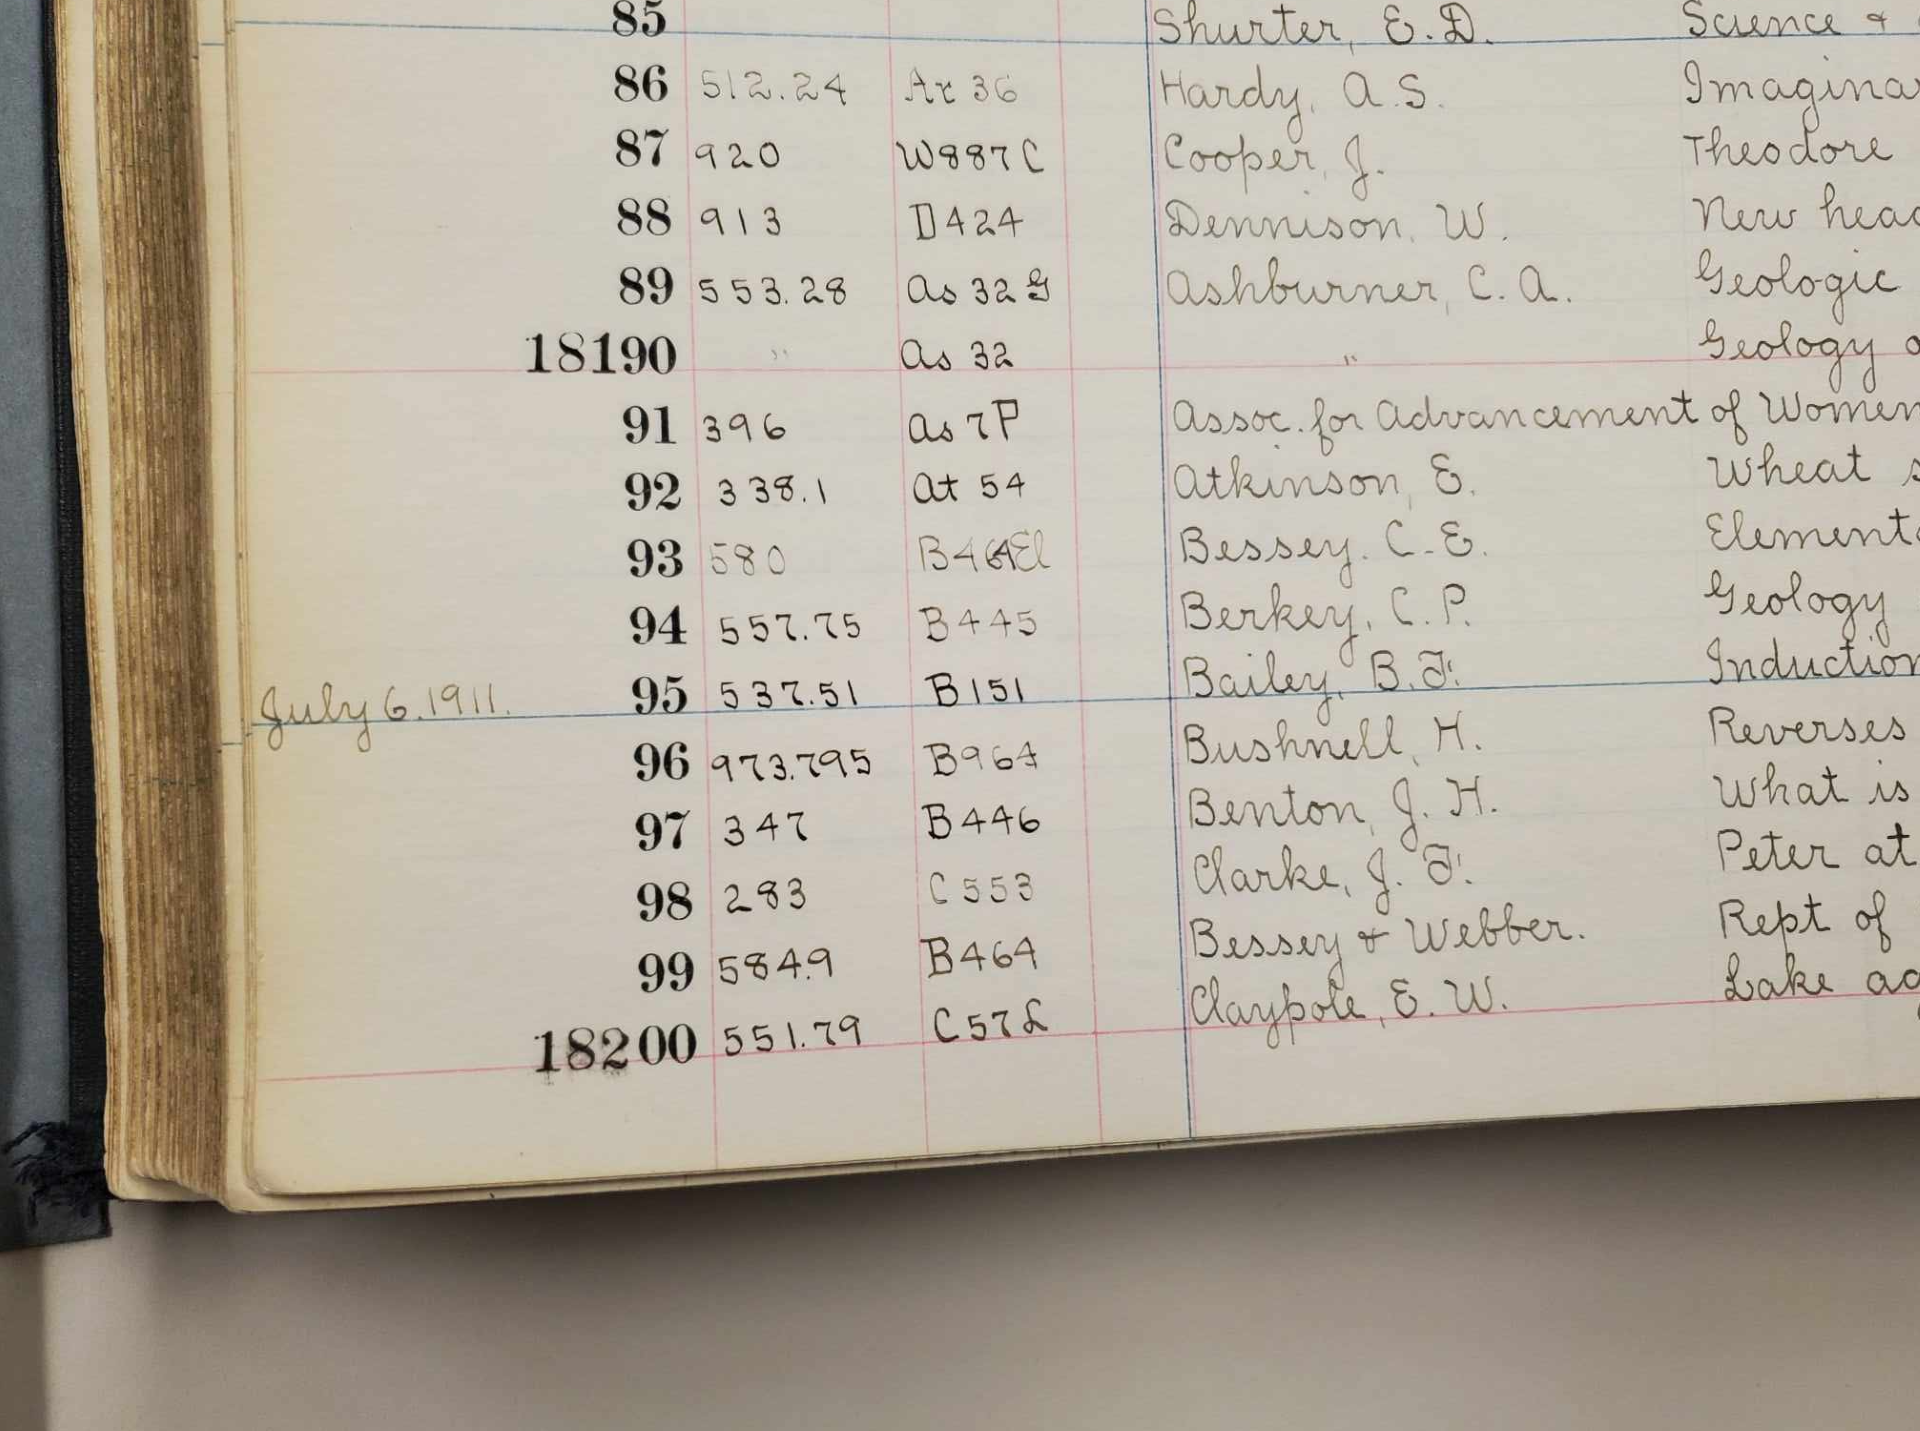 85 Shurter, E.D. Science &
86 512.24 Ar 36 Hardy, A.S.
87 920 W887C Cooper, J. Theodore
88 913 D424 Dennison, W. New
89 553.28 As 32 G Ashburner, C.A. Geologic
18190 " As 32 " Geology
91 396 As 7P Assoc. for Advancement of Women
92 338.1 At 54 Atkinson, E. Wheat
93 580 Bessey, C.E.
94 557.75 B445 Berkey, C.P. Geology
July 6.1911. 95 537.51 B151 Bailey, B.F. Induction
96 973.795 B964 Bushnell, H. Reverses
97 347 B446 Benton, J.H. What is
98 283 C553 Clarke, J.F. Peter at
99 584.9 B464 Bessey & Webber. Rept of
18200 551.79 C57L Claypole, E.W. Lake